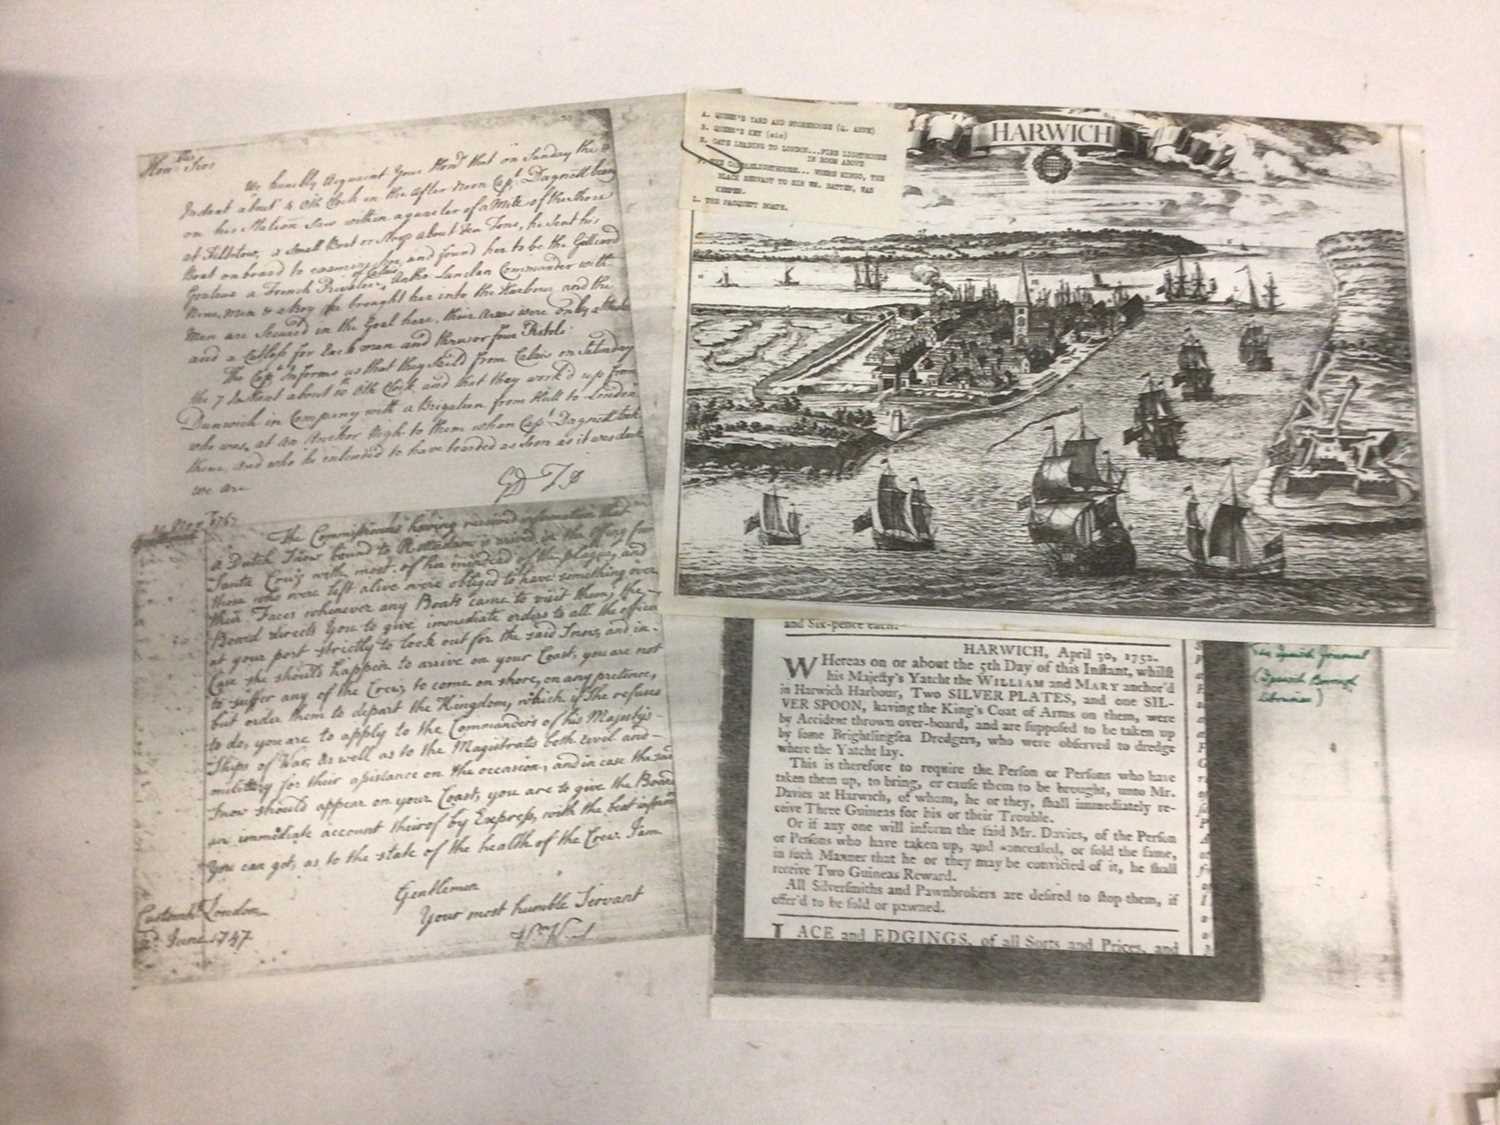 Hon.ble Sirs
We humbly Acquaint Your Hon.rs that on Sunday the 8
Instant about 4 Oth Clock in the After Noon Cap.t Dagnett being
on his Station Saw within a quarter of a Mile of the Shore
at Filstow, a Small Boat or Sloop about Ten Tons, he Sent his
Boat on board to examine her, and found her to be the
a French Privateer of Calais, Commander with
Nine Men & a Boy he brought her into the Harbour and the
Men are Secured in the Goal here, their Arms were only a
and a Cutlass for Each man and three or four Pistols
The Cap.t Informs us that they Sail'd from Calais on Saturday
the 7 Instant about 10 Oth Clock and that they work'd up from
Dunwich in Company with a Brigateen from Hull to London
who was at an Anchor Nigh to them when Cap.t Dagnett took
them, and who he intended to have boarded as Soon as it was dark
we are
The Commissioners having received information that
a Dutch Snow bound to Rotterdam is arived in the offing from
Santa Cruz with most of her men dead of the plague, and
those who were left alive were obliged to have something over
their Faces whenever any Boats came to visit them, the
Board directs You to give immediate orders to all the officers
at your port strictly to look out for the said Snow, and in
Case she should happen to arrive on your Coast, you are not
to suffer any of the Crew to come on shore, on any pretence,
but order them to depart the Kingdom, which if the refuses
to do, you are to apply to the Commanders of his Majestys
Ships of War, as well as to the Magistrates both Civil and
military for their assistance on the occasion, and in case the said
Snow should appear on your Coast, you are to give the Board
an immediate account thereof by Express, with the best information
You can get, as to the state of the health of the Crew. I am
Gentlemen
Your most humble Servant
Custom h. London
2.d June 1747
A. QUEEN'S YARD AND STOREHOUSE (Q. ANNE)
B. QUEEN'S KEY (sic)
E. GATE LEADING TO LONDON...FIRE LIGHTHOUSE
IN ROOM ABOVE
F. THE CANDLELIGHTHOUSE... WHERE MINGO, THE
BLACK SERVANT TO SIR WM. BATTEN, WAS
KEEPER.
L. THE PACQUETT BOATS.
HARWICH
and Six-pence each.
HARWICH, April 30, 1752.
WHereas on or about the 5th Day of this Instant, whilst
his Majesty's Yatcht the WILLIAM and MARY anchor'd
in Harwich Harbour, Two SILVER PLATES, and one SIL-
VER SPOON, having the King's Coat of Arms on them, were
by Accident thrown over-board, and are supposed to be taken up
by some Brightlingsea Dredgers, who were observed to dredge
where the Yatcht lay.
This is therefore to require the Person or Persons who have
taken them up, to bring, or cause them to be brought, unto Mr.
Davies at Harwich, of whom, he or they, shall immediately re-
ceive Three Guineas for his or their Trouble.
Or if any one will inform the said Mr. Davies, of the Person
or Persons who have taken up, and concealed, or sold the same,
in such Manner that he or they may be convicted of it, he shall
receive Two Guineas Reward.
All Silversmiths and Pawnbrokers are desired to stop them, if
offer'd to be sold or pawned.
LACE and EDGINGS, of all Sorts and Prices, and
Ipswich Journal
(Ipswich Borough
Libraries)